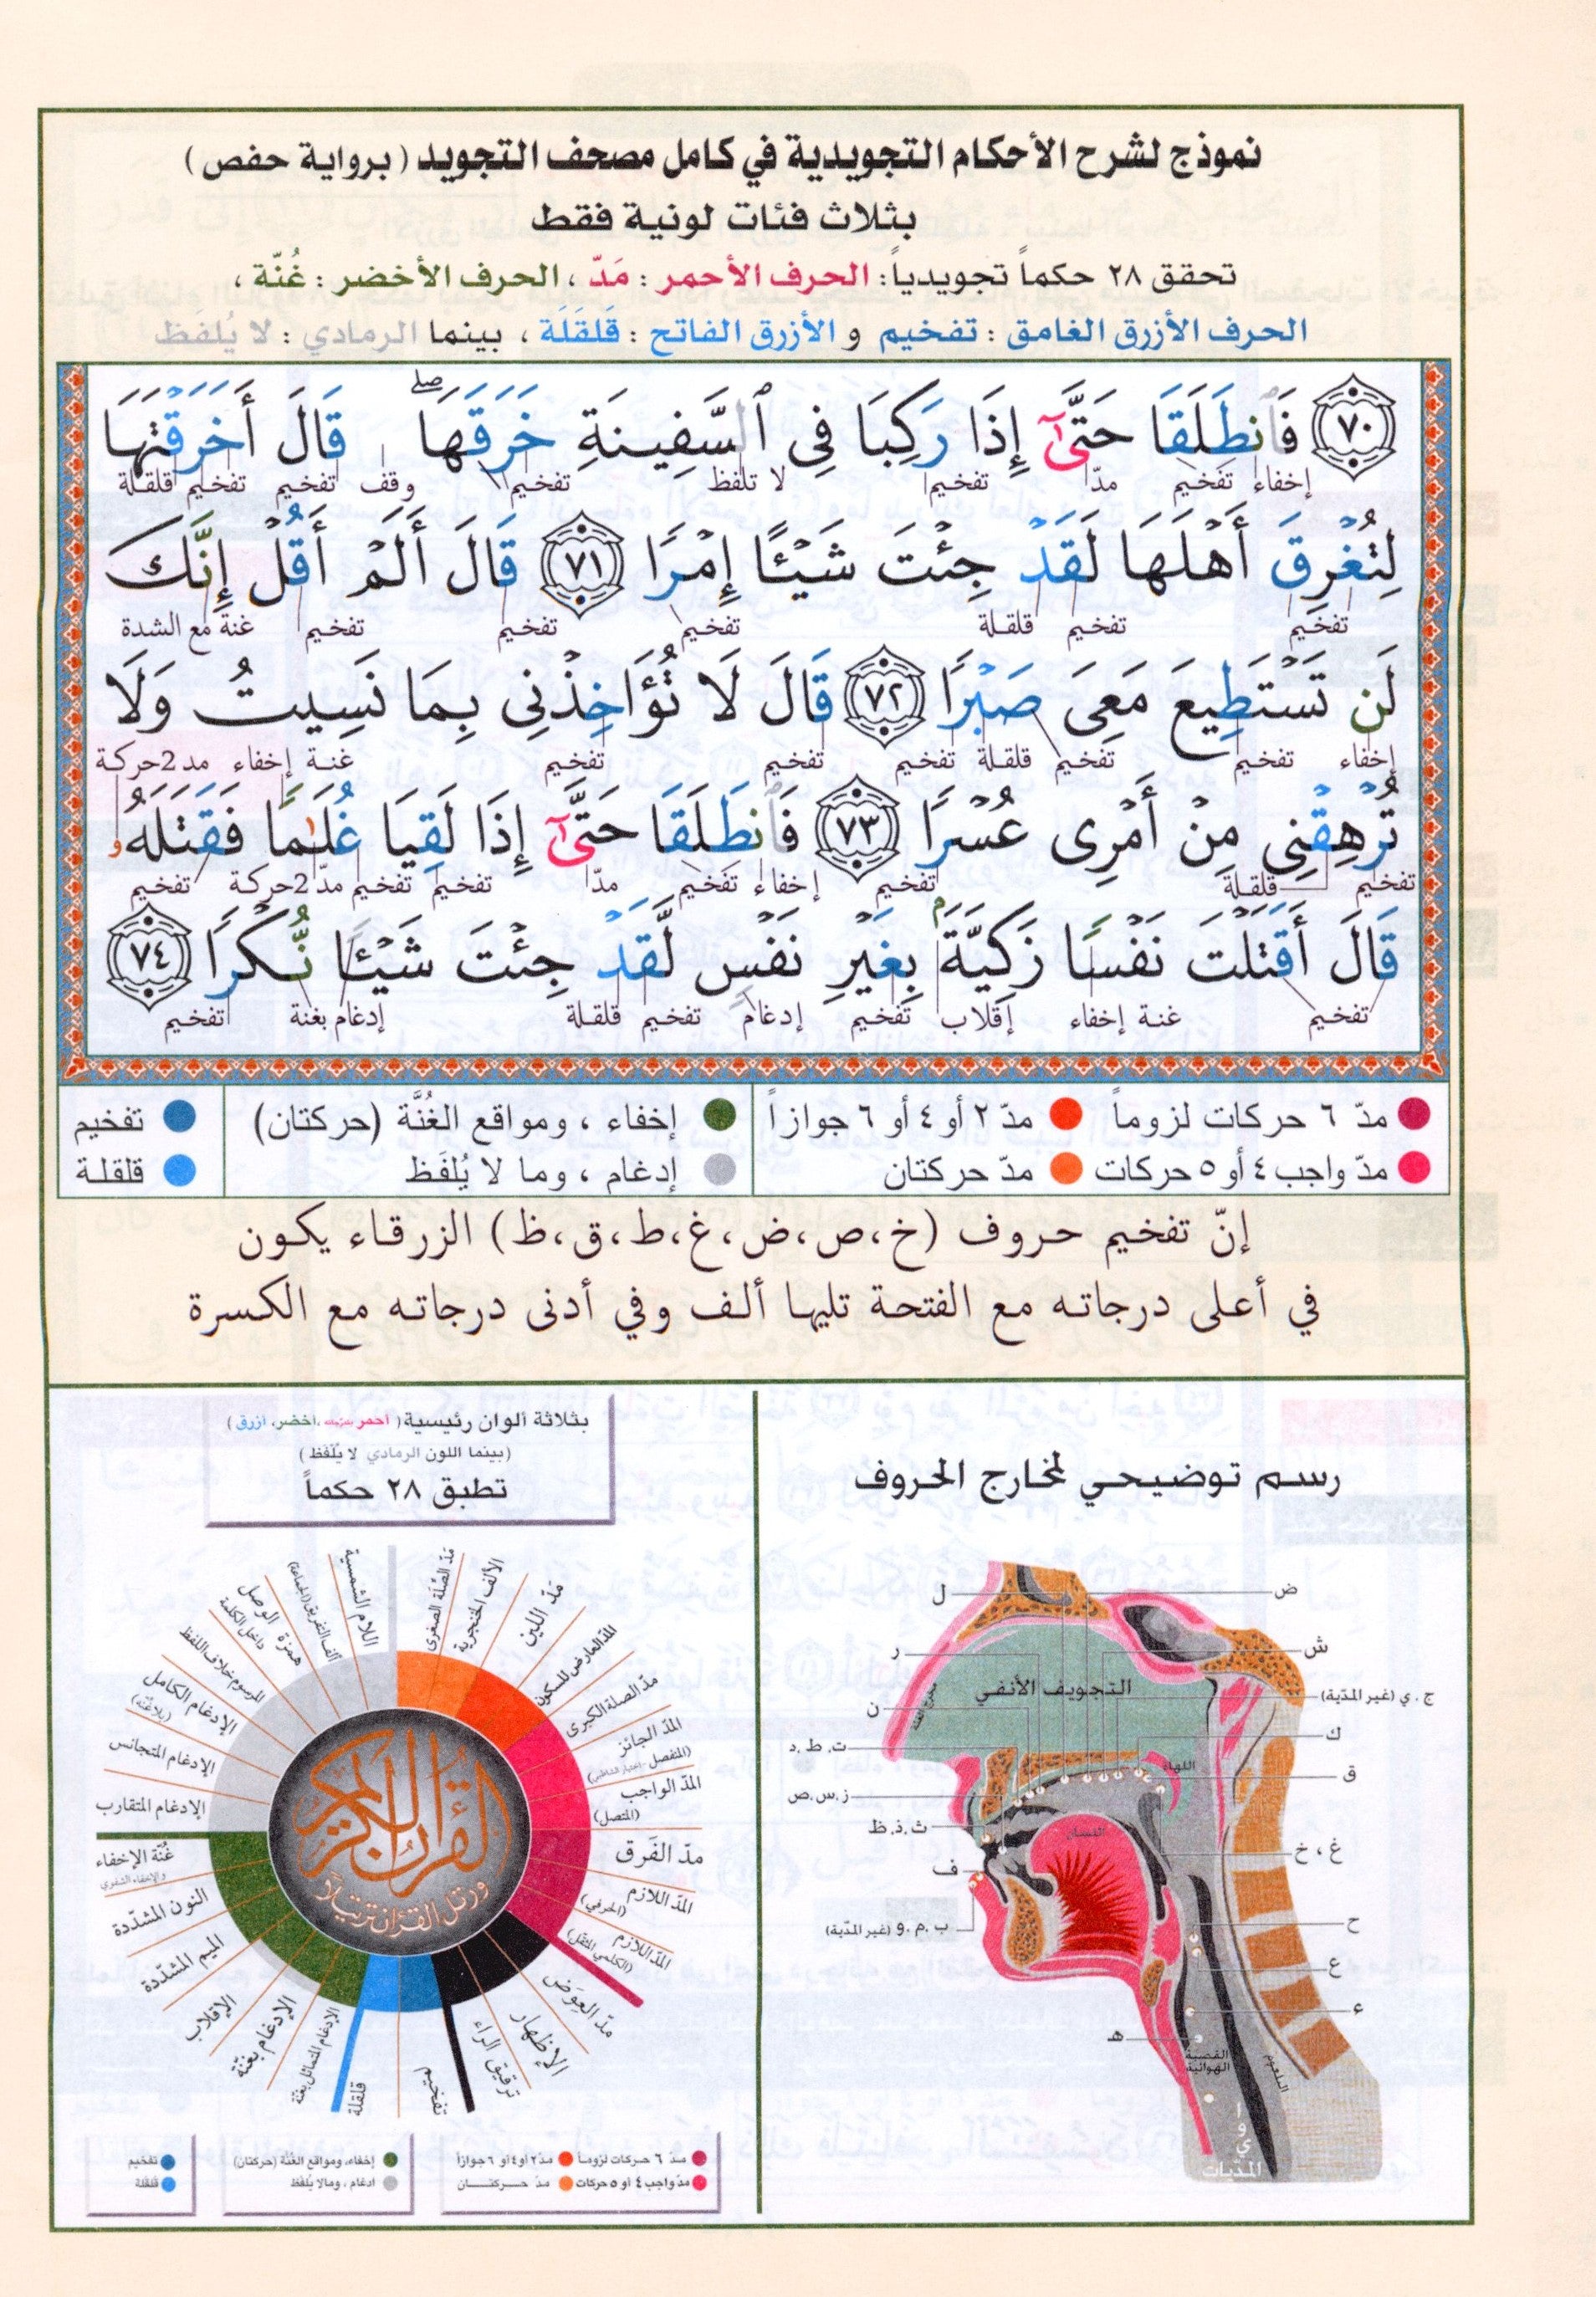 نموذج لشرح الأحكام التجويدية في كامل مصحف التجويد (برواية حفص)
بثلاث فئات لونية فقط
تحقق ٢٨ حكماً تجويدياً: الحرف الأحمر : مَدّ ، الحرف الأخضر : غُنّة ،
الحرف الأزرق الغامق : تفخيم و الأزرق الفاتح : قَلقَلَة ، بينما الرمادي : لا يُلفَظ
٧٠ فَٱنطَلَقَا حَتَّىٰٓ إِذَا رَكِبَا فِى ٱلسَّفِينَةِ خَرَقَهَاۖ قَالَ أَخَرَقْتَهَا
إخفاء تفخيم مدّ تفخيم لا تلفظ تفخيم وقف تفخيم تفخيم قلقلة
لِتُغْرِقَ أَهْلَهَا لَقَدْ جِئْتَ شَيْـًٔا إِمْرًا ٧١ قَالَ أَلَمْ أَقُلْ إِنَّكَ
تفخيم تفخيم قلقلة تفخيم تفخيم تفخيم غنة مع الشدة
لَن تَسْتَطِيعَ مَعِىَ صَبْرًا ٧٢ قَالَ لَا تُؤَاخِذْنِى بِمَا نَسِيتُ وَلَا
إخفاء تفخيم تفخيم قلقلة تفخيم تفخيم تفخيم غنة إخفاء مد 2حركة
تُرْهِقْنِى مِنْ أَمْرِى عُسْرًا ٧٣ فَٱنطَلَقَا حَتَّىٰٓ إِذَا لَقِيَا غُلَـٰمًا فَقَتَلَهُۥ
تفخيم قلقلة تفخيم إخفاء تفخيم مدّ تفخيم تفخيم مدّ 2حركة تفخيم
قَالَ أَقَتَلْتَ نَفْسًا زَكِيَّةًۢ بِغَيْرِ نَفْسٍ لَّقَدْ جِئْتَ شَيْـًٔا نُّكْرًا ٧٤
تفخيم غنة إخفاء إقلاب تفخيم إدغام تفخيم قلقلة إدغام بغنة تفخيم
مدّ ٦ حركات لزوماً مدّ ٢ أو ٤ أو ٦ جوازاً إخفاء ، ومواقع الغُنَّة (حركتان) تفخيم
مدّ واجب ٤ أو ٥ حركات مدّ حركتان إدغام ، وما لا يُلفَظ قلقلة
إنّ تفخيم حروف (خ،ص،ض،غ،ط،ق،ظ) الزرقاء يكون
في أعلى درجاته مع الفتحة تليها ألف وفي أدنى درجاته مع الكسرة
رسم توضيحي لمخارج الحروف
ض
ل
ش
ر
ج . ي (غير المدّية)
التجويف الأنفي
ن
ك
ت، ط، د
اللهاة
ق
ز، س، ص
ث، ذ، ظ
اللسان
غ ، خ
ف
ب ,م ,و (غير المدّية)
ح
ع
ء
هـ
القصبة الهوائية
البلعوم
ا
و
ي
المدّيات
بثلاثة ألوان رئيسية ( أحمر ،أخضر، أزرق )
(بينما اللون الرمادي لا يُلْفَظ )
تطبق ٢٨ حكماً
مَدّ الصِّلَة الصغرى
الألف الخنجرية
مَدّ اللين
المدّ العارض للسكون
مدّ الصلة الكبرى
المدّ الجائز
المدّ الواجب
(المتصل)
مدّ الفَرق
المدّ اللازم
(الحرفي)
المدّ اللازم
(الكلمي المثقل)
مدّ العِوَض
الإظهار
ترقيق الراء
تفخيم
قلقلة
الإدغام المتماثل بغنّة
الإدغام بغنّة
الإقلاب
الميم المشدّدة
النون المشدّدة
غُنّة الإخفاء
والإخفاء الشفوي
الإدغام المتقارب
الإدغام المتجانس
الإدغام الكامل
(بلا غُنّة)
المرسوم خلاف اللفظ
همزة الوصل
داخل الكلمة
ألف التفريق (الجماعة)
اللام الشمسية
القرآن الكريم
ورتل القرآن ترتيلا
مدّ ٦ حركات لزوماً مدّ ٢ أو ٤ أو ٦ جوازاً إخفاء، ومواقع الغُنَّة (حركتان) تفخيم
مدّ واجب ٤ أو ٥ حركات مدّ حركتــان إدغام ، ومالا يُلفَظ قلقلة